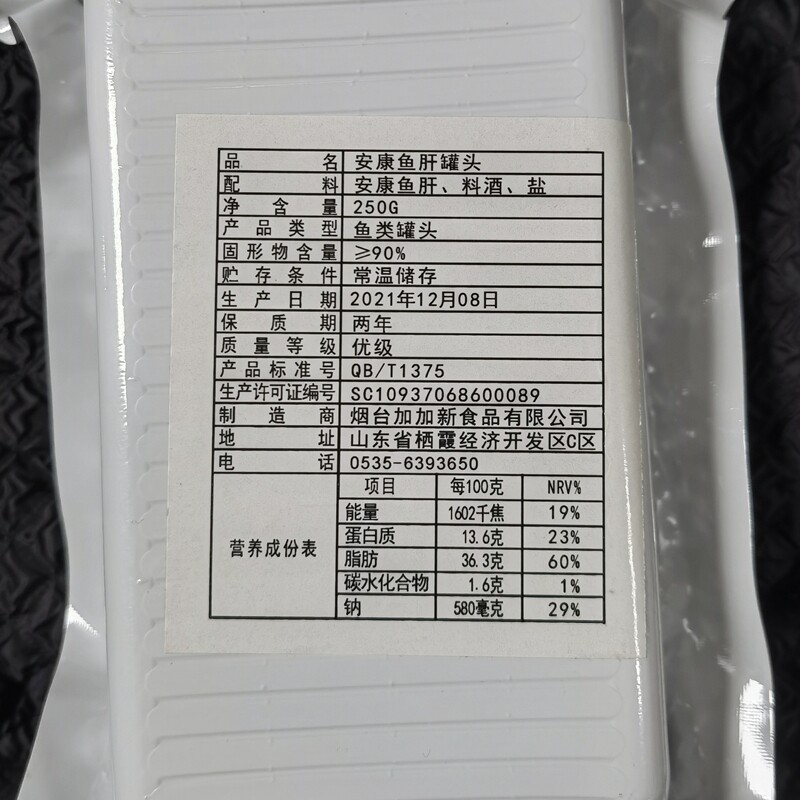 品名 安康鱼肝罐头
配料 安康鱼肝、料酒、盐
净含量 250G
产品类型 鱼类罐头
固形物含量 ≥90%
贮存条件 常温储存
生产日期 2021年12月08日
保质期 两年
质量等级 优级
产品标准号 QB/T1375
生产许可证编号 SC10937068600089
制造商 烟台加加新食品有限公司
地址 山东省栖霞经济开发区C区
电话 0535-6393650
营养成份表
项目 每100克 NRV%
能量 1602千焦 19%
蛋白质 13.6克 23%
脂肪 36.3克 60%
碳水化合物 1.6克 1%
钠 580毫克 29%